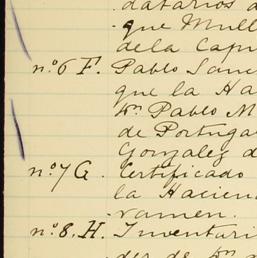 datarios d
que Mull
dela Capi
nº 6 F. Pablo Sanc
que la Ha
Dn. Pablo M
de Portuga
Gonzalez d
nº 7 G. Certificado
la Hacien
ramen.
nº 8. H. Inventari
der de Dn